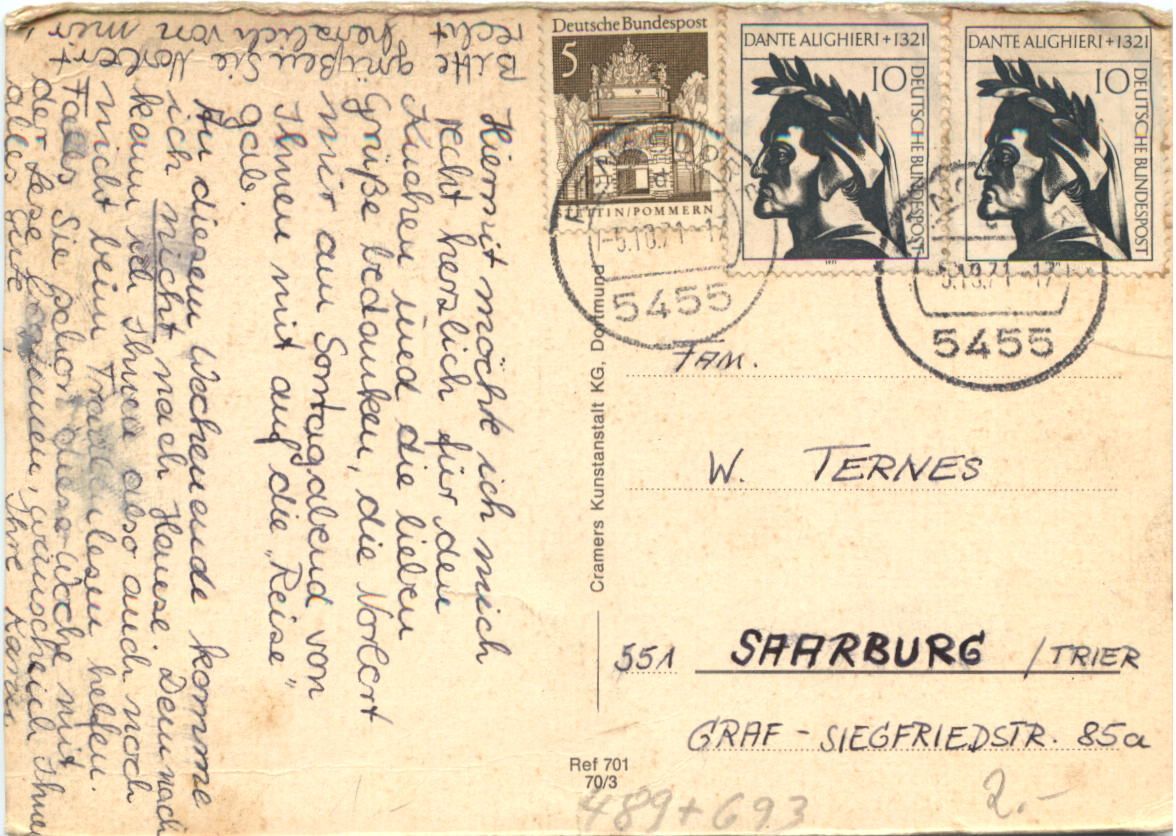 Deutsche Bundespost
5
STETTIN/POMMERN
DANTE ALIGHIERI + 1321
10
DEUTSCHE BUNDESPOST
1971
DANTE ALIGHIERI + 1321
10
DEUTSCHE BUNDESPOST
-5.10.71-1
5455
5.10.71-17
5455
Hiermit möchte ich mich
recht herzlich für den
Kuchen und die lieben
Grüße bedanken, die Norbert
mir am Sonntagabend von
Ihnen mit auf die „Reise“
gab.
An diesem Wochenende komme
ich nicht nach Hause. Demnach
kann ich Ihnen also auch noch
nicht beim Trauben lesen helfen.
Falls Sie schon diese Woche mit
der Lese beginnen, wünsche ich Ihnen
alles Gute, Ihre
Bitte
grüßen Sie Norbert
recht
herzlich von mir
Cramers Kunstanstalt KG, Dortmund
FAM.
W. TERNES
551 SAARBURG / TRIER
GRAF - SIEGFRIEDSTR. 85a
Ref 701
70/3
489+693
2.-